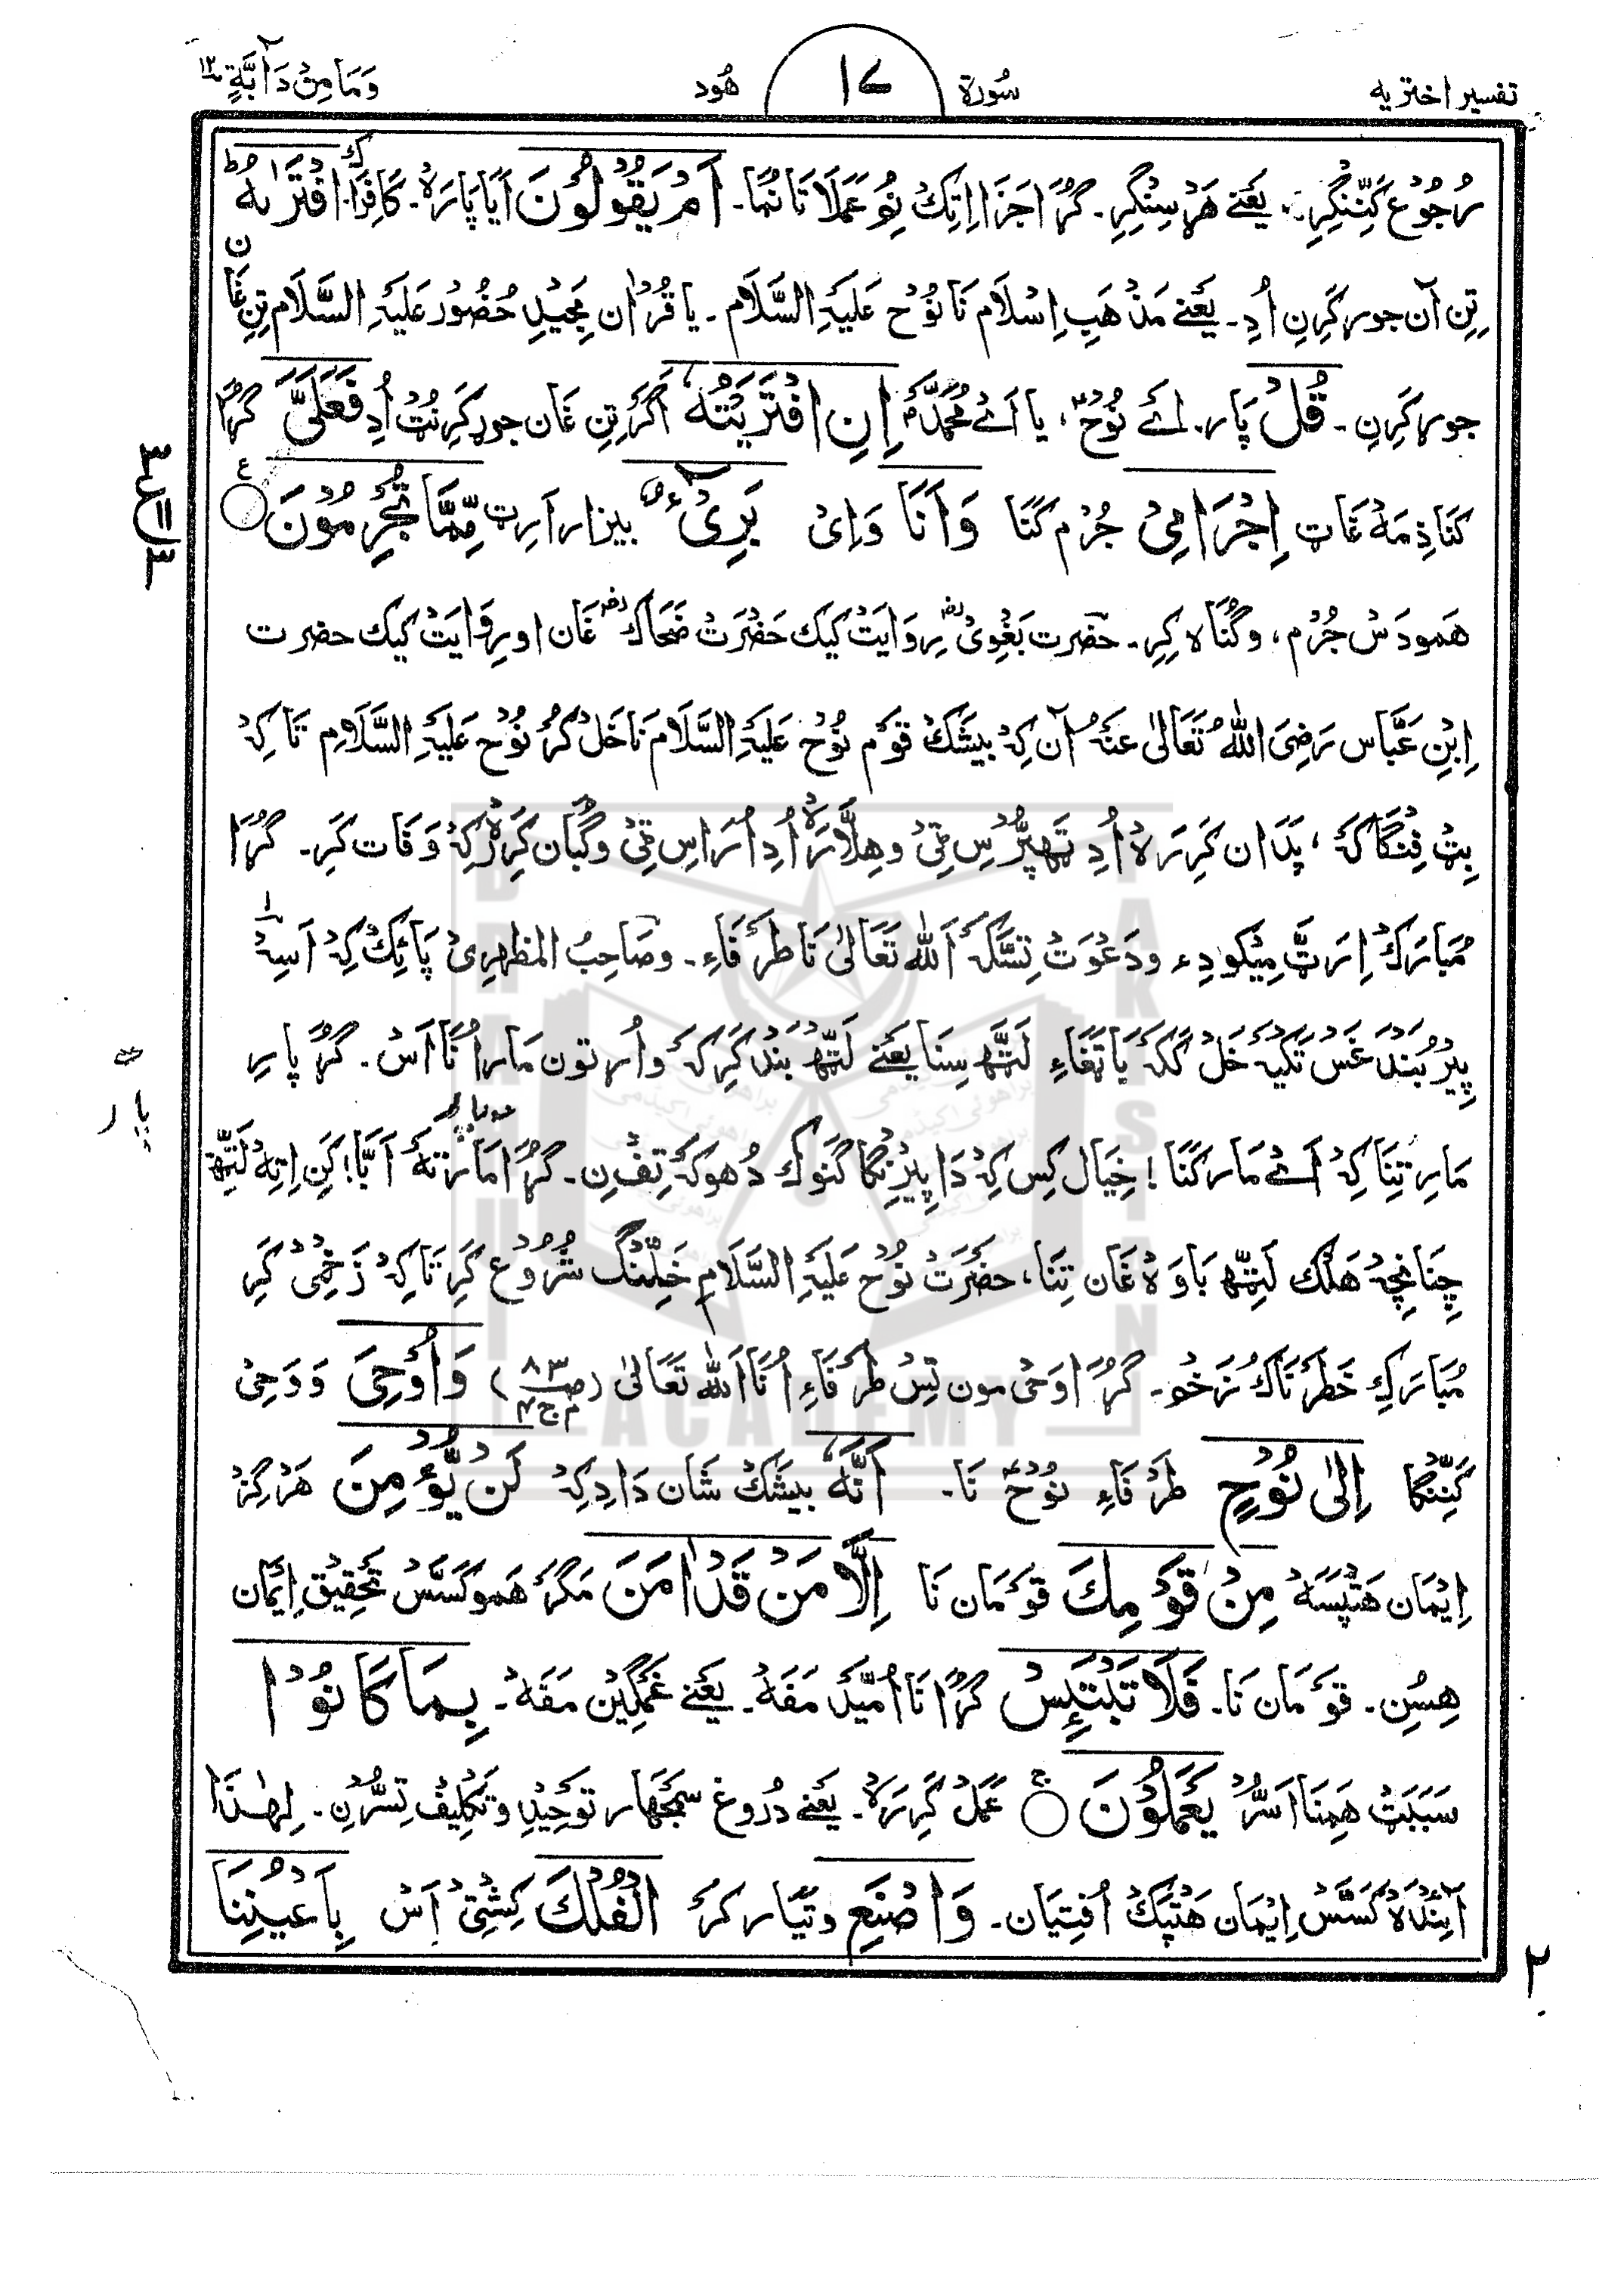 تفسیر اختریه سُورة ١٧ هُود وَمَا مِنْ دَآبَّةٍ ١٢
رُجُوْع کَنِّنْگِرِ۔ یَعْنے هَرْ سِنْگِرِ۔ گُڑَا جَزَا اِتِکْ نُمِ عَمَلَاتَا نُمَا۔ اَمْ يَقُوْلُوْنَ اَیَا پَارَہْ۔ کَافِرَاک افْتَرٰىهُ ط
تِن آن جوڑ کَرِنِ اُدِ۔ یَعْنے مَذْهَبِ اِسْلَام نَا نُوْح عَلَیْہِ السَّلَام۔ یا قُرْاٰن مَجِیْدِ حُضُوْر عَلَیْہِ السَّلَام تِن غَان
جوڑ کَرِنِ۔ قُلْ پَار۔ اَے نُوْحؑ، یا اَے مُحَمَّدؐ اِنِ افْتَرَيْتُهٗ اَگَرْ تِن غَان جوڑ کَرِنُٹْ اُدِ فَعَلَيَّ گُڑَا
کَنَا ذِمَہ غَاٹ اِجْرَامِيْ جُرْم کَنَا وَاَنَا وَاِیْ بَرِيْٓءٌ بیزار اَرِٹ مِّمَّا تُجْرِمُوْنَ ع
هَمودَسْ جُرْم، وگُنَاہ کِرِ۔ حضرت بَغْوِیْؒ رِوَایَتْ کیک حَضْرَتْ ضَحَاکؒ غَان او رِوَایَتْ کیک حضرت
اِبْنِ عَبَّاس رَضِیَ اللهُ تَعَالٰی عَنْہُ آن کِہْ بیشَکْ قَوْم نُوْح عَلَیْہِ السَّلَام نَا خَلْکُرْ نُوْح عَلَیْہِ السَّلَامِ تَاکِہْ
بِٹْ فِنْگَاکَہ، پَدَان کَرِرَہْ اُدِ تَهپُّرْسِ ٹِیْ وهِلَّارَہْ اُدِ اُرَاسِ ٹِیْ وگُمَان کَرِرَہْ کِہْ وَفَات کَرِ۔ گُڑَا
مُبَارَکْ اِرَٹِّ مِیْکودِء ودَعْوَتْ تِسَّکَہ اَلله تَعَالٰی نَا طَرَفَاءِ۔ وصَاحِبُ المظہرِیْ پَائِکْ کِہْ اَسِہْ
پِیْرُبُنْدَغَسْ تَکْیَہْ خَلْکَکَہ یَا تَفَاءِ لَٹْهسِنَا یَعْنے لَٹْهْ بَنْد کَرِکَہ وَاُر تون مَار اُنَا اَسْ۔ گُڑَا پارِ
مَارِ تِنَا کِہْ اَے مَار کَنَا! خِیَال کِسْ کِہْ دَا پِیْرِنْگَا گَنوک دُهوکَہ تِفْ نِ۔ گُڑَا مَار تَہْ اَبَّا! کَنِ اِتِہ لَٹْهِ
چَنَانْچِہ هَلْک لَٹِّهِ بَاوَہ غَان تِنَا، حضْرَتْ نُوْح عَلَیْہِ السَّلَامِ خَلِّنْگ شُرُوْع کَرِ تَاکِہْ زَخْمِیْ کَرِ
مُبَارَکِ خَطْرَنَاکُ زَخُو۔ گُڑَا وَحْی مون تِسْ طَرَفَاءِ اُنَا اَلله تَعَالٰی (ص ٨٣ م ج ٤) وَاُوْحِيَ وَوَحِیْ
کَنِّنْگَا اِلٰى نُوْحٍ طَرْفَاءِ نُوْحؑ نَا۔ اَنَّهٗ بیشَکْ شَان دَادِ کِہْ لَنْ يُّؤْمِنَ هَرْگِزْ
اِیْمَان هَتْپَسَہ مِنْ قَوْمِكَ قَوْمَان نَا اِلَّا مَنْ قَدْ اٰمَنَ مَگَرْ هَمو کَسَّسْ تَحْقِیْق اِیْمَان
هِسُنِ۔ قَوْمَان نَا۔ فَلَا تَبْتَئِسْ گُڑَا نَا اُمِّیْد مَفَہْ۔ یَعْنے غَمْگِیْن مَفَہْ۔ بِمَا كَانُوْا
سَبَبَٹْ هَمِنَا اَسَّرُ يَفْعَلُوْنَ ج عَمَلْ کَرِرَہْ۔ یَعْنے دُرُوغ سَمْجَهار تَوْحِیْدِ وتَکْلِیْف تِسُّرْنِ۔ لِهٰذَا
آئِنْدَہ کَسَّسْ اِیْمَان هَتْپَکْ اُفْتِیَان۔ وَاصْنَعِ وتَیَّار کَرْ الْفُلْكَ کِشْتِیْ اَسْ بِاَعْيُنِنَا
٢